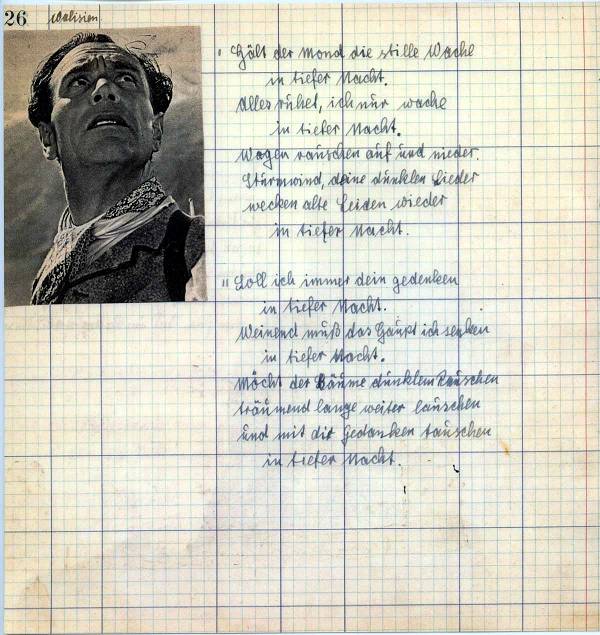 26
' Hält der Mond die stille Wache
in tiefer Nacht.
Alles ruhet, ich nur wache
in tiefer Nacht.
Wogen rauschen auf und nieder.
Sturmwind, deine dunklen Lieder
wecken alte Leiden wieder
in tiefer Nacht.
" Soll ich immer dein gedenken
in tiefer Nacht.
Weinend muß das Haupt ich senken
in tiefer Nacht.
Möcht der Bäume dunklem Rauschen
träumend lange weiter lauschen
und mit dir Gedanken tauschen
in tiefer Nacht.